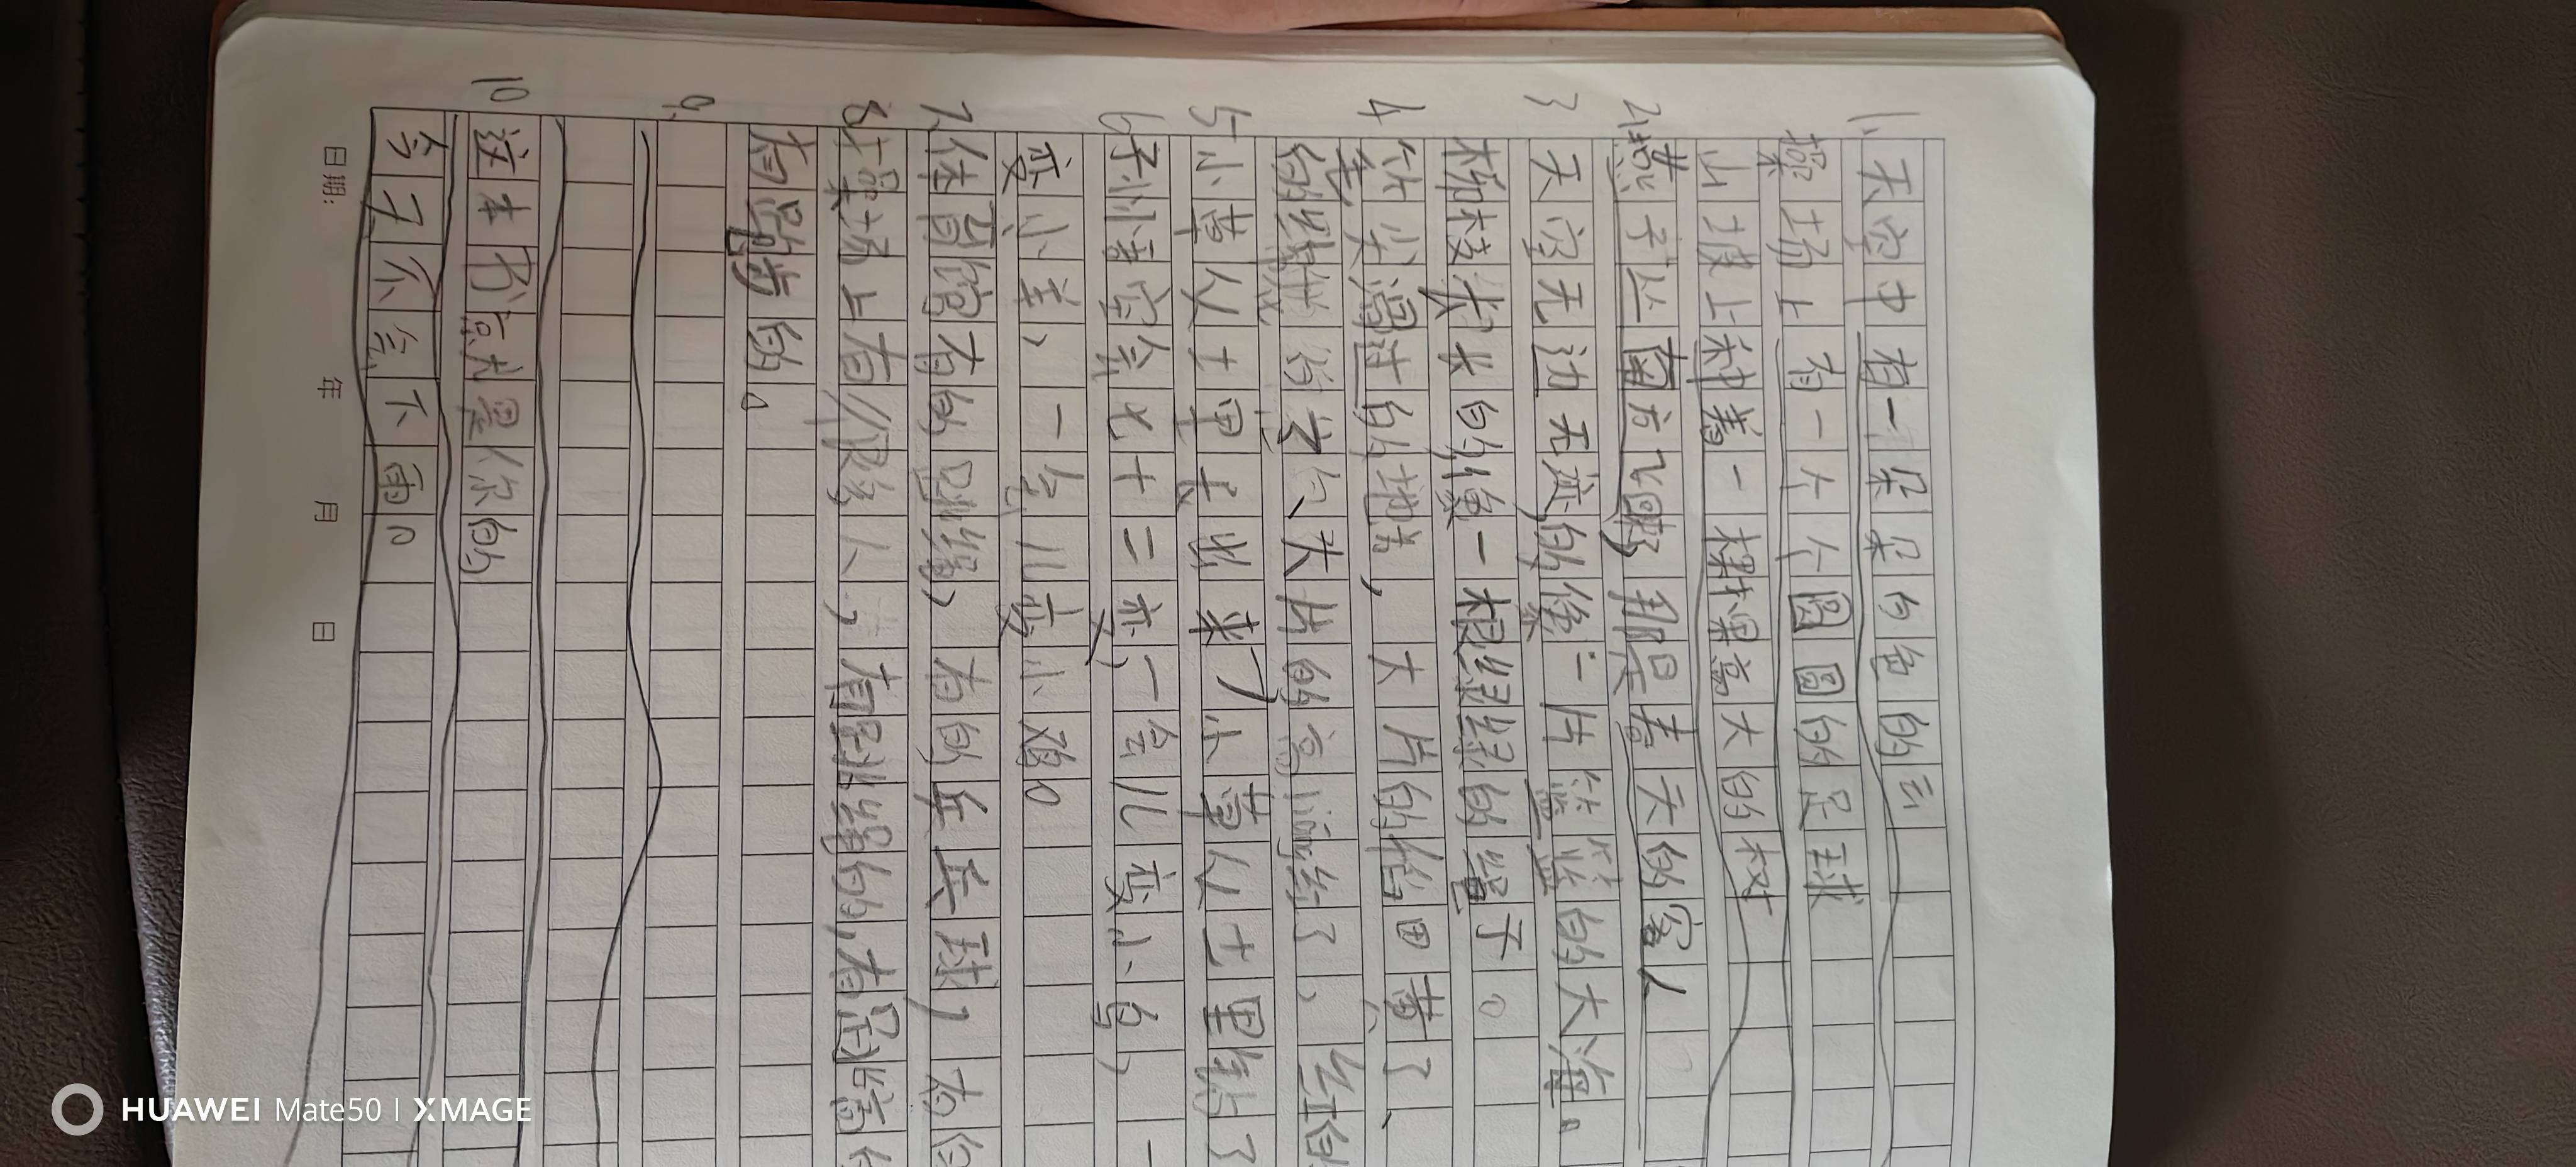 1. 天空中有一朵朵白色的云
操场上有一个个圆圆的足球
山坡上种着一棵棵高大的树
2. 燕子从南方飞回来了,那是春天的客人
3 天空无边无或的像一片篮篮的大海。
柳枝长长的像一根根绿绿的辫子。
4 竹尖过的地方,大片的稻田黄了、
大片的高粱红了、红的
5 小草从土里长出来了小草从土里钻了
6 孙悟空会七十二变,一会儿变小鸟,一
变小羊,一会儿变小鸡。
7. 体育馆有的跳绳,有的乒乓球,有的
8. 操场上有很多人,有跳绳的,有足
有跑步的。
9.
10 这本书京尤是你的
今天不会下雨。
日期: 年 月 日
HUAWEI Mate50 | XMAGE